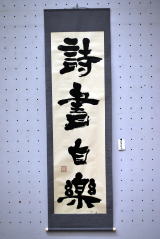 詩書自樂